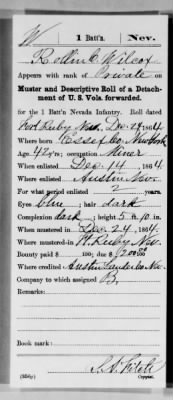 W 1 Batt'n. Nev.
Rollin C. Wilcox
Appears with rank of Private on
Muster and Descriptive Roll of a Detach-
ment of U. S. Vols. forwarded.
for the 1 Batt'n Nevada Infantry. Roll dated
Fort Ruby Nev, Dec. 24, 1864.
Where born Essex Co, New York
Age 42 y'rs; occupation Miner
When enlisted Dec. 14, 1864.
Where enlisted Austin Nev.
For what period enlisted 2 years.
Eyes blue; hair dark
Complexion dark; height 5 ft. 10 in.
When mustered in Dec. 24, 1864.
Where mustered in Ft. Ruby Nev.
Bounty paid $ 100; due $ 100
Where credited Austin Lander Co. Nev.
Company to which assigned B.
Remarks:
Book mark:
(356g) Copyist.